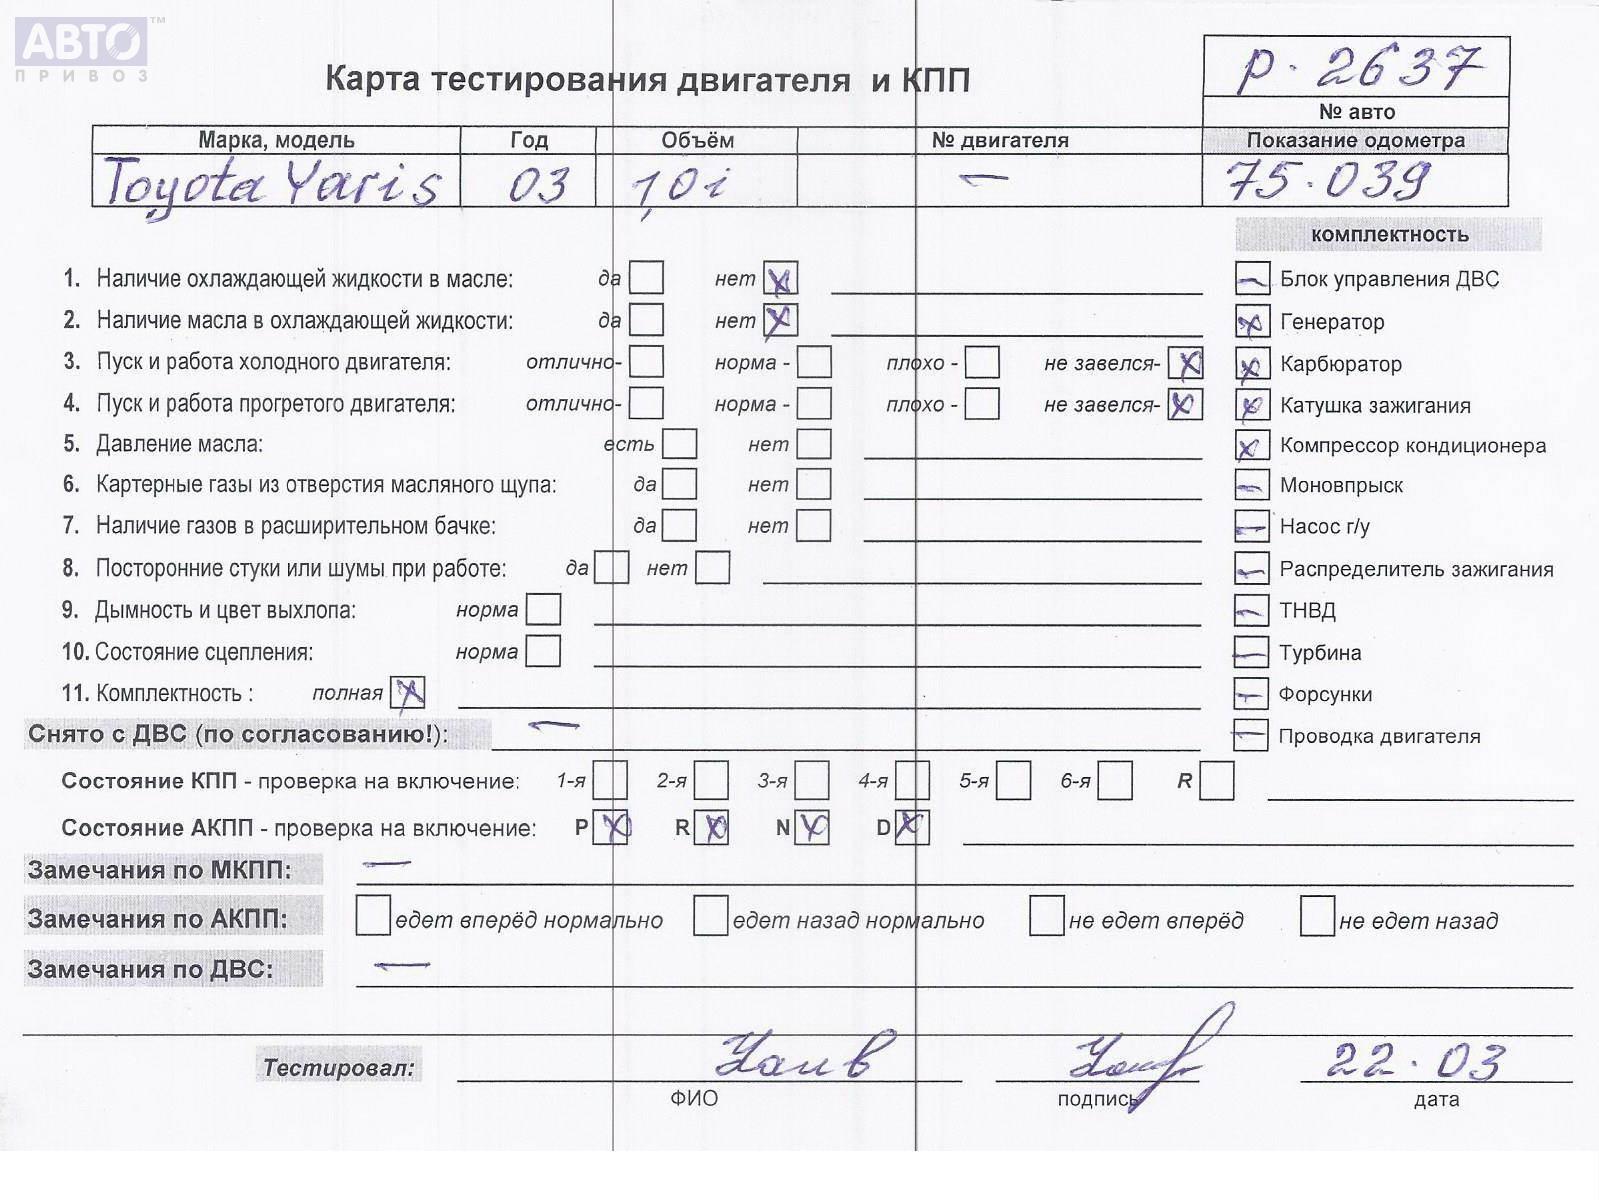 АВТО™
ПРИВОЗ
Карта тестирования двигателя и КПП
р. 2637
№ авто
Марка, модель Год Объём № двигателя Показание одометра
Toyota Yaris 03 1,0i — 75.039
комплектность
1. Наличие охлаждающей жидкости в масле: да нет X
Блок управления ДВС
2. Наличие масла в охлаждающей жидкости: да нет X
Генератор
3. Пуск и работа холодного двигателя: отлично- норма - плохо - не завелся- X
Карбюратор
4. Пуск и работа прогретого двигателя: отлично- норма - плохо - не завелся- X
Катушка зажигания
5. Давление масла: есть нет
Компрессор кондиционера
6. Картерные газы из отверстия масляного щупа: да нет
Моновпрыск
7. Наличие газов в расширительном бачке: да нет
Насос г/у
8. Посторонние стуки или шумы при работе: да нет
Распределитель зажигания
9. Дымность и цвет выхлопа: норма
ТНВД
10. Состояние сцепления: норма
Турбина
11. Комплектность : полная X
Форсунки
Снято с ДВС (по согласованию!): —
Проводка двигателя
Состояние КПП - проверка на включение: 1-я 2-я 3-я 4-я 5-я 6-я R
Состояние АКПП - проверка на включение: P X R X N X D X
Замечания по МКПП: —
Замечания по АКПП: едет вперёд нормально едет назад нормально не едет вперёд не едет назад
Замечания по ДВС: —
Тестировал: 22.03
ФИО подпись дата